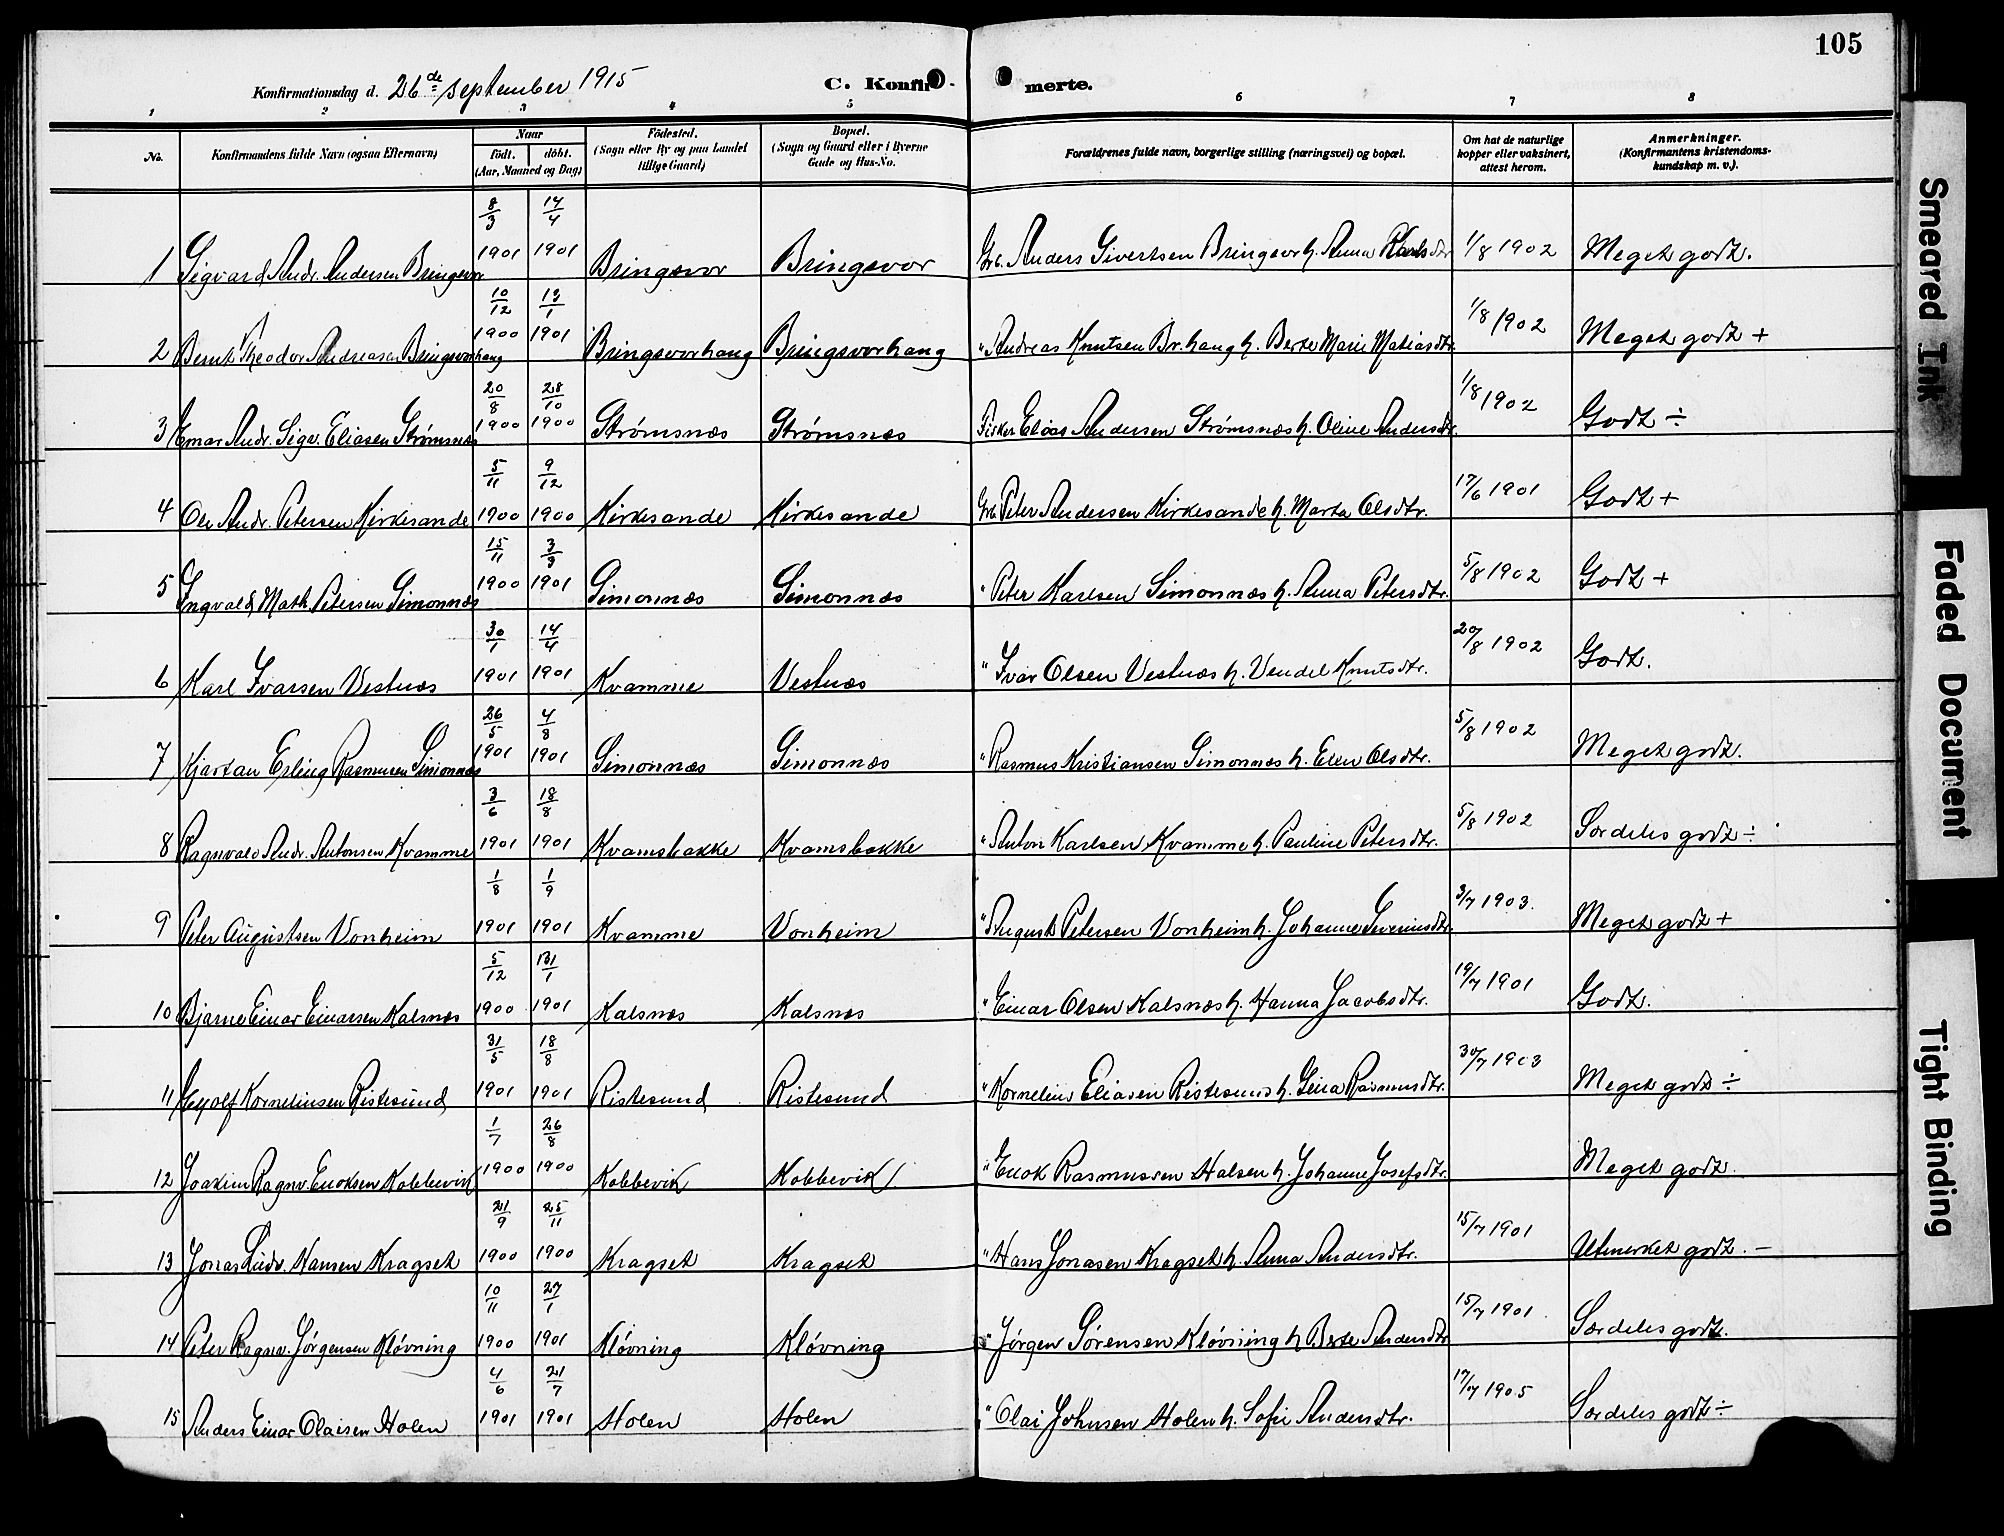 105
Konfirmationsdag d. 26de September 1915 C. Konfir- merte.
1 2 3 4 5 6 7 8
No. Konfirmandens fulde Navn (ogsaa Efternavn) Naar født. døbt. (Aar, Maaned og Dag) Födested. (Sogn eller By og paa Landet tillige Gaard) Bopæl. (Sogn og Gaard eller i Byerne Gade og Hus-No. Forældrenes fulde navn, borgerlige stilling (næringsvei) og bopæl. Om hat de naturlige kopper eller vaksinert, attest herom. Anmerkninger. (Konfirmantens kristendomskundskap m. v.).
1 Sigvard Andr. Andersen Bringsvor 8/3 1901 14/4 1901 Bringsvor Bringsvor Grb. Anders Sivertsen Bringsvor h. Anna Karlsdtr 1/8 1902 Meget godt.
2 Bernt Theodor Andreasen Bringsvorhaug 10/12 1900 13/1 1901 Bringsvorhaug Bringsvorhaug " Andreas Knutsen Br.haug h. Berte Marie Matiasdtr. 1/8 1902 Meget godt +
3 Emar Andr. Sigv. Eliasen Strømsnæs 20/8 1900 28/10 1900 Strømsnæs Strømsnæs Fisker Elias Andersen Strømsnæs h. Oline Andersdtr. 1/8 1902 Godt ÷
4 Ole Andr. Petersen Kirkesande 5/11 1900 9/12 1900 Kirkesande Kirkesande Grb. Peter Andersen Kirkesande h. Marta Olsdtr. 17/6 1901 Godt +
5 Ingvald Math. Petersen Simonnæs 15/11 1900 3/3 1901 Simonnæs Simonnæs " Peter Karlsen Simonnæs h. Anna Petersdtr. 5/8 1902 Godt +
6 Karl Ivarsen Vestnæs 30/1 1901 14/4 1901 Kvamme Vestnæs " Ivar Olsen Vestnæs h. Vendel Knutsdtr. 20/8 1902 Godt.
7 Kjartan Erling Rasmusen Simonnæs 26/5 1901 4/8 1901 Simonnæs Simonnæs " Rasmus Kristiansen Simonnæs h. Elen Olsdtr. 5/8 1902 Meget godt.
8 Ragnvald Andr. Antonsen Kvamme 3/6 1901 18/8 1901 Kvamsbakke Kvamsbakke " Anton Karlsen Kvamme h. Pauline Petersdtr. 5/8 1902 Særdeles godt ÷
9 Peter Augustsen Vonheim 1/8 1901 1/9 1901 Kvamme Vonheim " August Petersen Vonheim h. Johanne Severinsdtr. 3/7 1903. Meget godt +
10 Bjarne Einar Einarsen Kalsnæs 5/12 1900 31/1 1901 Kalsnæs Kalsnæs " Einar Olsen Kalsnæs h. Hanna Jacobsdtr. 19/7 1901 Godt.
11 Eyolf Korneliusen Ristesund 31/5 1901 18/8 1901 Ristesund Ristesund " Kornelius Eliasen Ristesund h. Lina Rasmusdtr. 30/7 1903 Meget godt ÷
12 Joakim Ragnv. Enoksen Kobbevik 1/7 1900 26/8 1900 Kobbevik Kobbevik " Enok Rasmussen Halsen h. Johanne Josefsdtr. Meget godt.
13 Jonas Ludv. Hansen Kragset 21/9 1900 25/11 1900 Kragset Kragset " Hans Jonasen Kragset h. Anna Andersdtr. 15/7 1901 Utmerket godt. –
14 Peter Ragnv. Jørgensen Kløvning 10/11 1900 27/1 1901 Kløvning Kløvning " Jørgen Sørensen Kløvning h. Berte Andersdtr 15/7 1901. Særdeles godt.
15 Anders Einar Olaisen Holen 4/6 1901 21/7 1901 Holen Holen " Olai Johnsen Holen h. Sofie Andersdtr. 17/7 1905 Særdeles godt ÷
Smeared Ink
Faded Document
Tight Binding